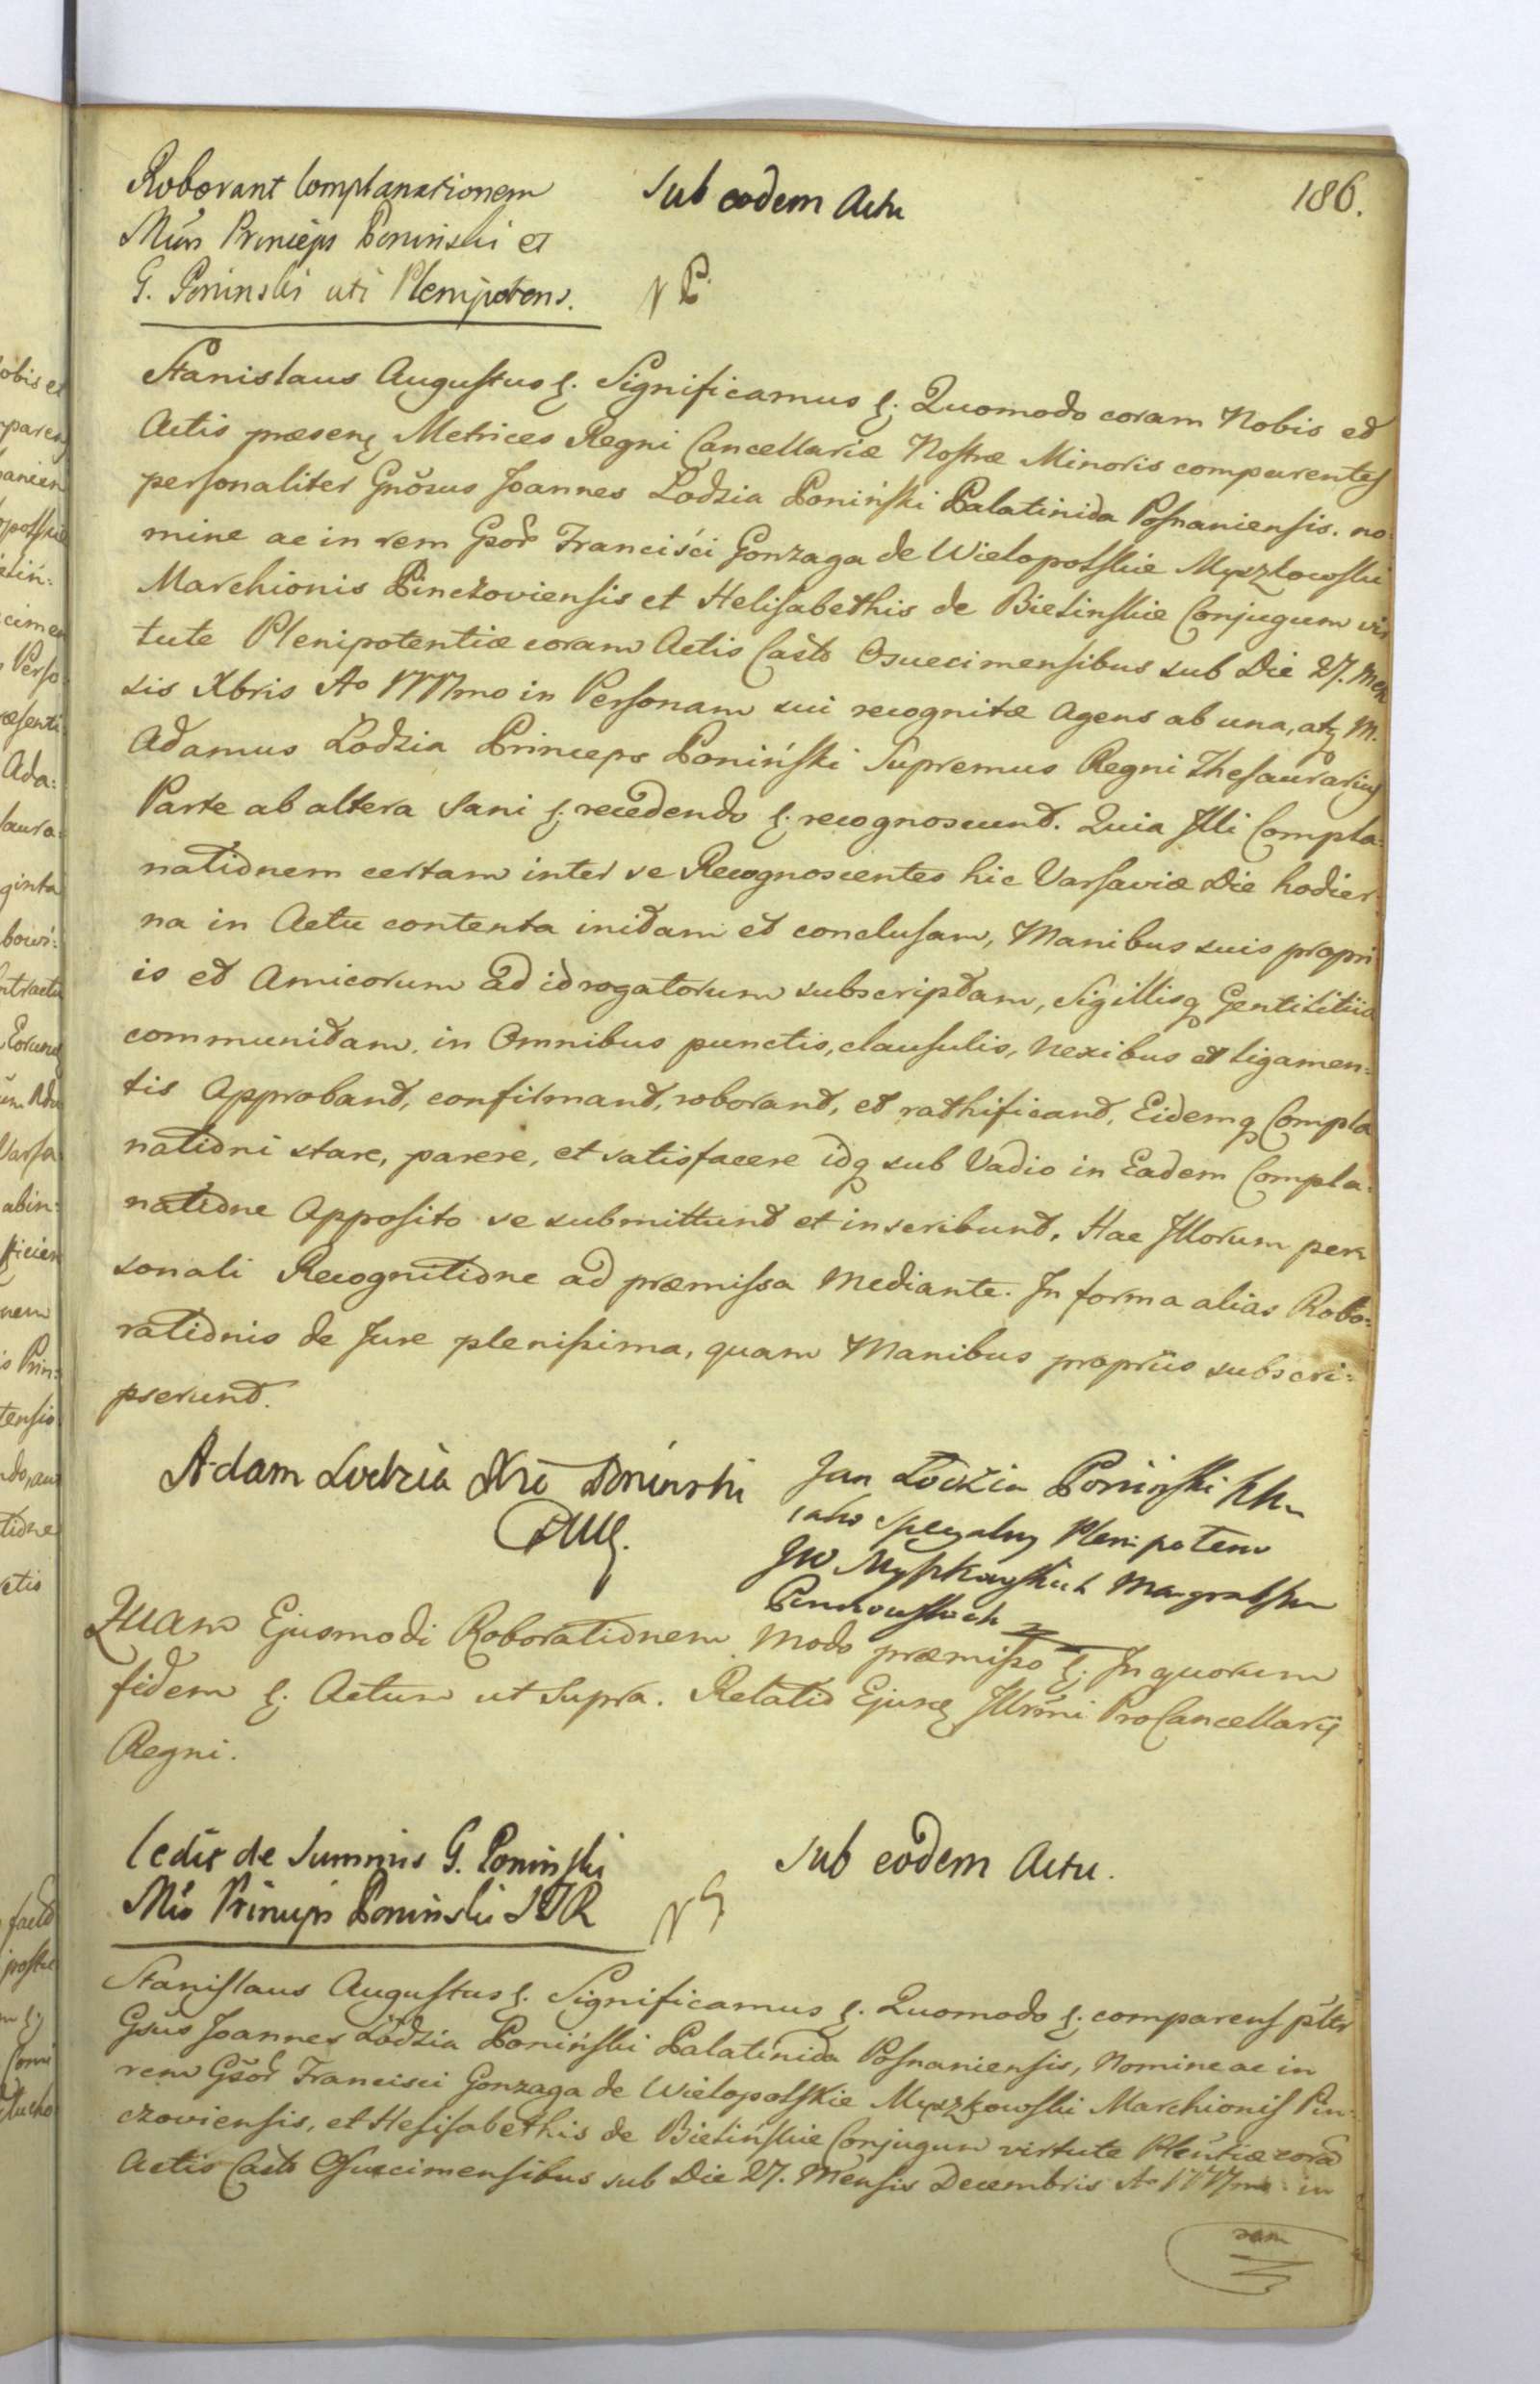 186.
Roborant Complanationem
Mus Princeps Poninski et
G. Poninski uti Plenipotens.
Sub eodem Actu
Stanislaus Augustus &. Significamus &. Quomodo coram Nobis et
Actis præsen Metrices Regni Cancellariæ Nostræ Minoris comparentes
personaliter Gnosus Joannes Lodzia Poniński Palatinida Posnaniensis. no
mine ac in rem Gsor Franciści Gonzaga de Wielopolskie Myszkowski
Marchionis Pinczoviensis et Helisabethis de Bielinskie Conjugum vir
tute Plenipotentiæ coram Actis Castr Osviecimensibus sub Die 27. Men
sis Xbris Ao 1777mo in Personam sui recognitæ Agens ab una, atq M.
Adamus Lodzia Princeps Poniński Supremus Regni Thesaurarius
Parte ab altera Sani &. recedendo &. recognoscunt. Quia Illi Compla:
nationem certam inter se Recognoscentes hic Varsaviæ Die hodier
na in Actu contenta initam et conclusam, Manibus suis propri
is et Amicorum ad id rogatorum subscriptam, Sigillisq Gentilitiis
communitam. in Omnibus punctis, clausulis, Nexibus et ligamen:
tis Approbant, confirmant, roborant, et rathificant, Eidemq Compla
nationi stare, parere, et satisfacere idq sub Vadio in Eadem Compla:
natione Apposito se submittunt et inscribunt. Hac Illorum per
sonali Recognitione ad præmissa Mediante. In forma alias Robo:
rationis de Jure plenissima, quam Manibus propriis subscri:
pserunt.
Adam Lodzia Poninski
Jan Łodzia Poninski
iako specyalny Plenipotent
JW Myszkowskich Margrabstwa
Pinczowskich
Quam Ejusmodi Roborationem Modo præmisso &. In quorum
fidem &. Actum ut Supra. Relatio Ejusd Illrmi ProCancellarij
Regni.
Cedit de Summis G. Poninski
Mco Principi Poninski STR
Sub eodem Actu.
Stanislaus Augustus &. Significamus &. Quomodo &. comparens pltr
Gsus Joannes Lodzia Poniński Palatinida Posnaniensis, Nomine ac in
rem Gsor Francisci Gonzaga de Wielopolskie Myszkowski Marchionis Pin:
czoviensis, et Helisabethis de Bielińskie Conjugum virtute Plentiæ coram
Actis Castr Osviecimensibus sub Die 27. Mensis Decembris Ao 1777mo in